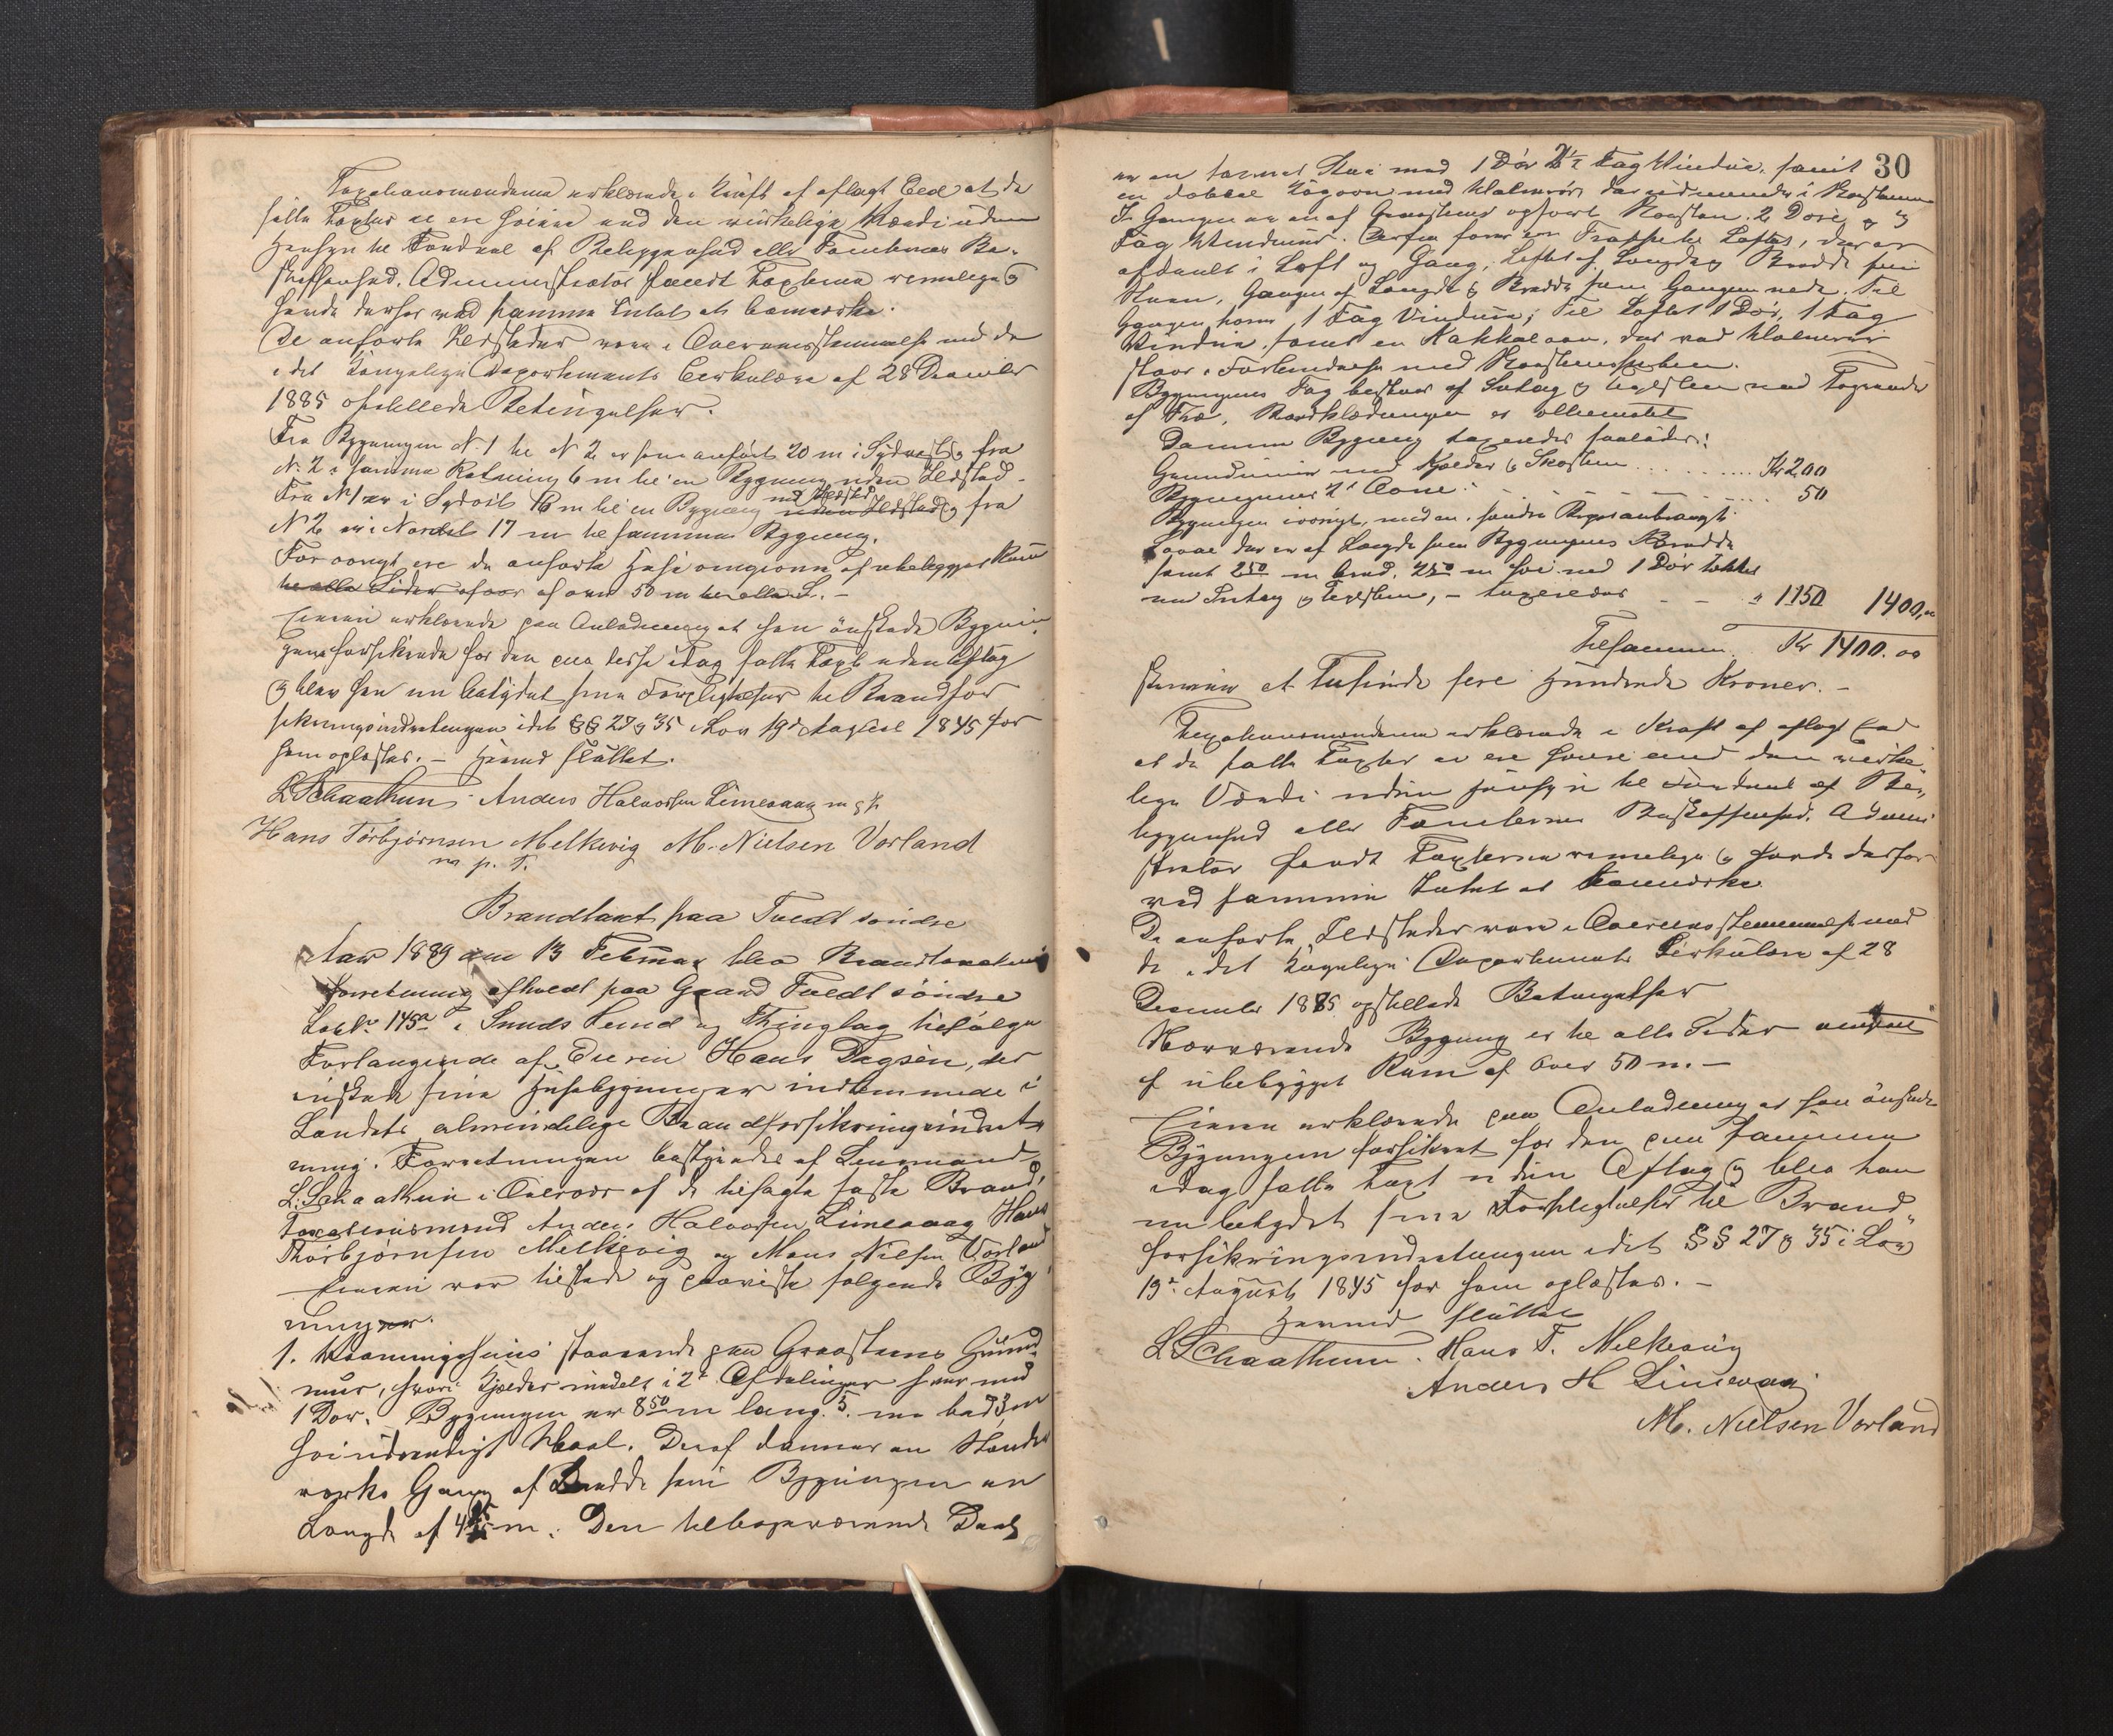 Taxationsmændene erklærede i Kraft af aflagt Eed at de
satte Taxter ei ere høiere end den virkelige Værdi uden
Hensyn til Fordeel af Beliggenhed eller Tomternes Be-
skaffenhed. Administrator fandt Taxterne rimelige og
havde derfor ved samme Intet at bemærke.
De anførte Ildsteder vare i Overensstemmelse med de
i det Kongelige Departements Cirkulære af 28 December
1885 opstillede Betingelser.
Fra Bygningen N. 1 til N 2 er som anført 20 m i Sydvest og fra
N. 2 i samme Retning 6 m til en Bygning uden Ildsted.
Fra N 1 er i Sydost 16 m til en Bygning med Ildsted uden Ildsted og fra
N 2 er i Nordost 17 m til samme Bygning.
For øvrigt ere de anførte Huse omgivne af ubebygget Rum
til alle Sider af over 50 m til alle S. -
Eieren erklærede paa Anledning at han önskede Bygnin
gene forsikrede for den paa disse idag satte Taxt uden Afslag
og blev han nu betydet sine Forpligtelser til Brandfor
sikringsindretningen idet §§ 27 og 35 i Lov 19de August 1845 for
ham oplæstes. - Hermed sluttet.
L Schaathun Anders Halvorsen Limevaag m p P.
Hans Torbjørnsen Melkevig M. Nielsen Vorland
m. p. P.
Brandtaxt paa Tvedt söndre
Aar 1889 den 13 Februar blev Brandtaxations
forretning afholdt paa Gaard Tvedt söndre
Löbe N. 145a i Sunds Sund og Thinglag ifølge
Forlangende af Eieren Hans Dagsen, der
önskede sine Husebygninger indlemmede i
Landets almindelige Brandforsikringsindret-
ning. Forretningen bestyredes af Lensmand
L. Schaathun i Overvær af de tilsagte faste Brand-
Taxationsmænd Anders Halvorsen Limevaag Hans
Thorbjørnsen Melkevig og Mons Nilsen Vorland
Eieren var tilstede og paaviste følgende Byg
ninger.
1. Vaaningshuus staaende paa Graasteens Grund
mur, hvori Kjelder inddelt i 2de Afdelinger hver med
1 Dør. Bygningen er 8.50 m lang. 5. m bred 3 m
høi udvendigt Maal. Deraf danner en Stænder
værks Gang af Bredde som Bygningen en
Længde af 4 m. Den tilbageværende Deel
30
er en tømret Stue med 1 Dør 2½ Fag Vindue, samt
en dobbel Kogeovn med Kakkelrör, der udmunder i Skorstenen
I Gangen er en af Graasteens opført Skorsten. 2 Døre og 3
Fag Vinduer. Derfra fører en Trappe til Loftet, der er
afdeelt i Loft og Gang, Loftet af Længde og Bredde som
Stuen, Gangen af Længde og Bredde som Gangen nede. Til
Gangen hører 1 Fag Vindue; Til Loftet 1 Dør, 1 Fag
Vindue, samt en Kakkelovn, der ved Kakkelrör
staar i Forbindelse med Skorstenspiben.
Bygningens Tag bestaar af Sutag og Taglsten med Tagrender
af Træ. Bordklædningen er oliemalet
Denne Bygning taxeredes saaledes:
Grundmur med Kjelder og Skorsten . . . . . . . . . . Kr 200
Bygningens 2de Ovne . - - - - - . . . . . . 50
Bygningen iøvrigt, med en i søndre anbragt
der er af Længde som Bygningens Bredde
samt 2.50 m bred. 2.50 m høi med 1 Dør tækket
med Sutag og Taglsten, - taxeredes - - „ 1150 1400,oo
Tilsammen Kr 1400.oo
skriver et Tusinde fire Hundrede Kroner. -
Taxationsmændene erklærede i Kraft af aflagt Eed
at de satte Taxter ei ere høiere end den virke-
lige Værdi uden Hensyn til Fordeel af Be-
liggenhed eller Tomternes Beskaffenhed. Admini
strator fandt Taxterne rimelige og havde derfor
ved samme Intet at bemærke.
De anførte Ildsteder vare i Overensstemmelse med
de i det Kongelige Departements Cirkulære af 28
December 1885 opstillede Betingelser
Nærværende Bygning er til alle Sider omgivet
af ubebygget Rum af over 50 m. -
Eieren erklærede paa Anledning at han önskede
Bygningen forsikret for den paa samme
idag satte Taxt uden Afslag og blev han
nu betydet sine Forpligtelser til Brand-
forsikringsindretningen idet §§ 27 og 35 i Lov
19de August 1845 for ham oplæstes. -
Hermed sluttet
L Schaathun. Hans T. Melkevig
Anders H Limevaag
M. Nielsen Vorland